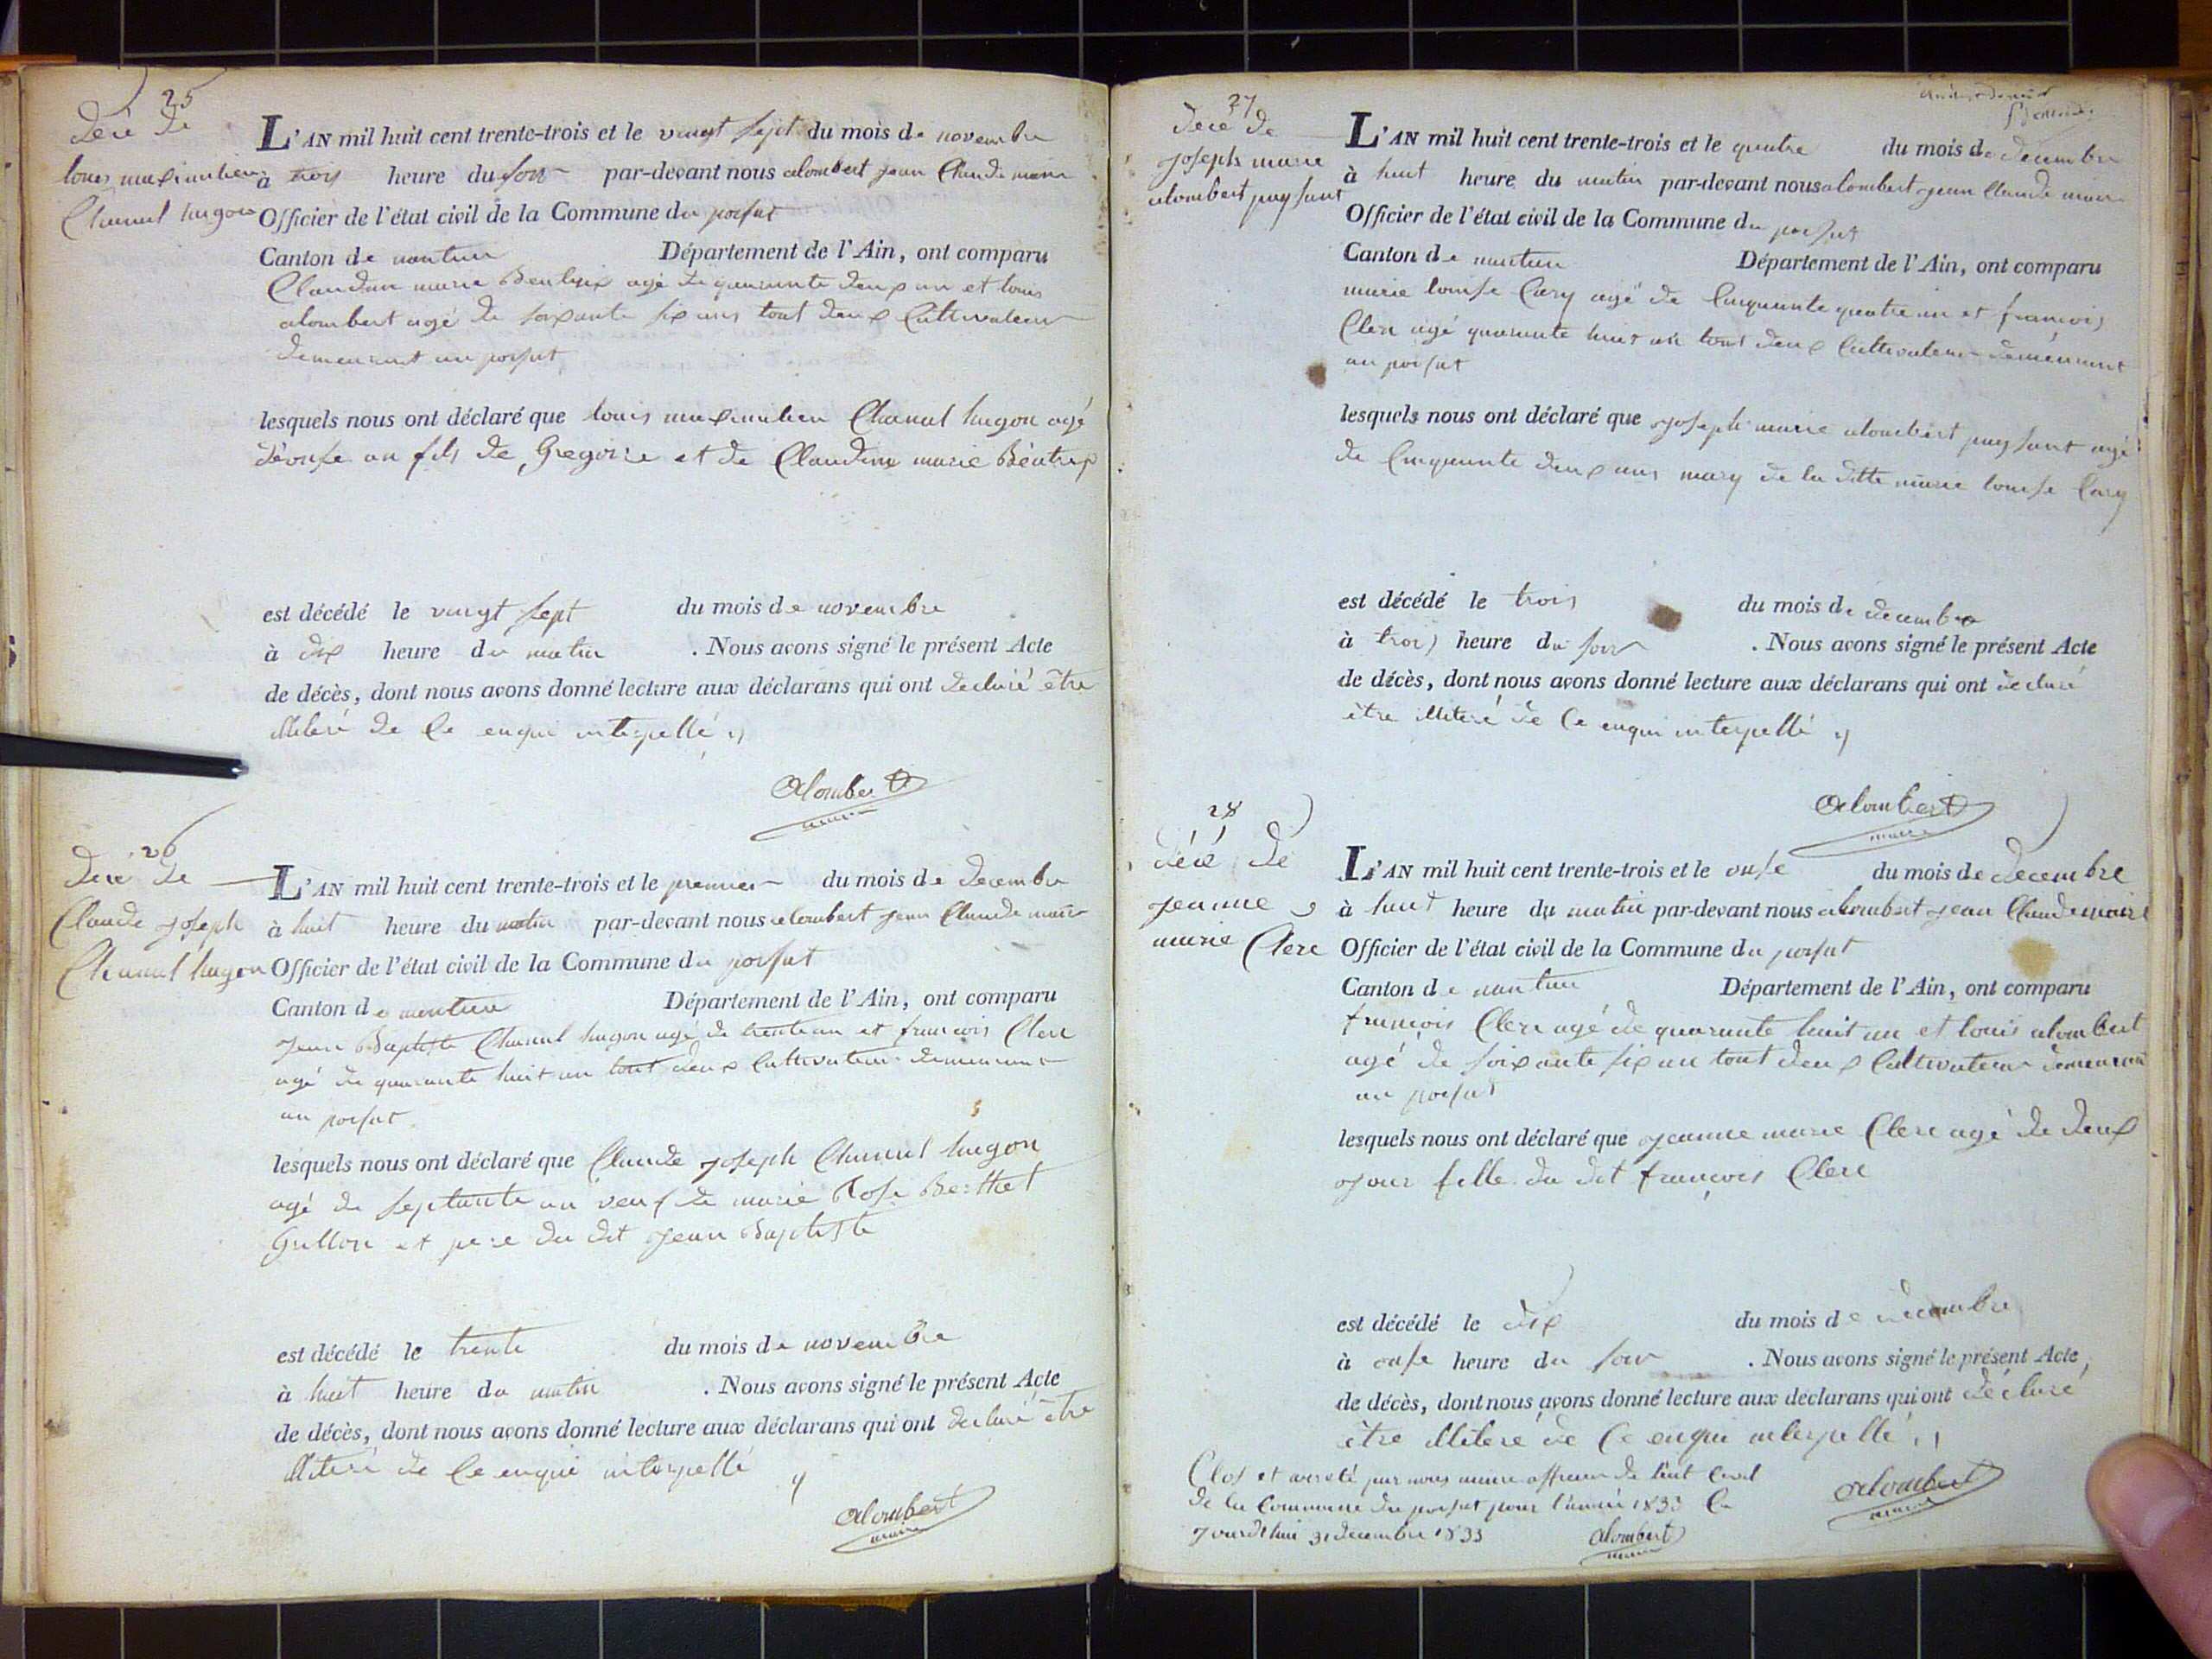 25
décé de
louis maximilien
Chanal hugon
L'AN mil huit cent trente-trois et le vingt sept du mois de novembre
à trois heure du soir par-devant nous alombert jean Claude maire
Officier de l'état civil de la Commune du poisat
Canton de nantua Département de l'Ain, ont comparu
Claudine marie Beatrix agé de quarante deux an et louis
alombert agé de soixante six ans tout deux Cultivateur
demeurant au poisat
lesquels nous ont déclaré que louis maximilien Chanal hugon agé
d'onse an fils de Gregoire et de Claudine marie Béatrix
est décédé le vingt sept du mois de novembre
à dix heure du matin . Nous avons signé le présent Acte
de décès, dont nous avons donné lecture aux déclarans qui ont declaré être
illiteré de Ce enqui interpellé
Alombert
maire
26
décé de
Claude joseph
Chanal hugon
L'AN mil huit cent trente-trois et le premier du mois de decembre
à huit heure du matin par-devant nous alombert jean Claude maire
Officier de l'état civil de la Commune du poisat
Canton de nantua Département de l'Ain, ont comparu
jean Baptiste Chanal hugon agé de trente an et francois Clerc
agé de quarante huit an tout deux Cultivateur demeurant
au poisat
lesquels nous ont déclaré que Claude joseph Chanal hugon
agé de septante an veuf de marie Rose Berthet
Grillon et pere du dit jean Baptiste
est décédé le trente du mois de novembre
à huit heure du matin . Nous avons signé le présent Acte
de décès, dont nous avons donné lecture aux déclarans qui ont declaré être
illiteré de Ce enqui interpellé
Alombert
maire
27
décé de
joseph marie
alombert paysant
L'AN mil huit cent trente-trois et le quatre du mois de decembre
à huit heure du matin par-devant nous alombert jean Claude maire
Officier de l'état civil de la Commune du poisat
Canton de nantua Département de l'Ain, ont comparu
marie louise Cary agé de Cinquante quatre an et francois
Clerc agé quarante huit an tout deux Cultivateur demeurant
au poisat
lesquels nous ont déclaré que joseph marie alombert paysant agé
de Cinquante deux ans mary de la ditte marie louise Cary
est décédé le trois du mois de decembre
à trois heure du soir . Nous avons signé le présent Acte
de décès, dont nous avons donné lecture aux déclarans qui ont declaré
être illiteré de Ce enqui interpellé
Alombert
maire
28
décé de
jeanne
marie Clerc
L'AN mil huit cent trente-trois et le onse du mois de decembre
à huit heure du matin par-devant nous alombert jean Claude maire
Officier de l'état civil de la Commune du poisat
Canton de nantua Département de l'Ain, ont comparu
francois Clerc agé de quarante huit an et louis alombert
agé de soixante six an tout deux Cultivateur demeurant
au poisat
lesquels nous ont déclaré que jeanne marie Clerc agé de deux
jour fille du dit francois Clerc
est décédé le dix du mois de decembre
à onse heure du soir . Nous avons signé le présent Acte
de décès, dont nous avons donné lecture aux déclarans qui ont déclaré
être illiteré de Ce enqui interpellé
Alombert
maire
Clos et arreté par nous maire officier de l'etat Civil
de la Commune du poisat pour l'année 1833 Ce
jourd'hui 31 decembre 1833
Alombert
maire